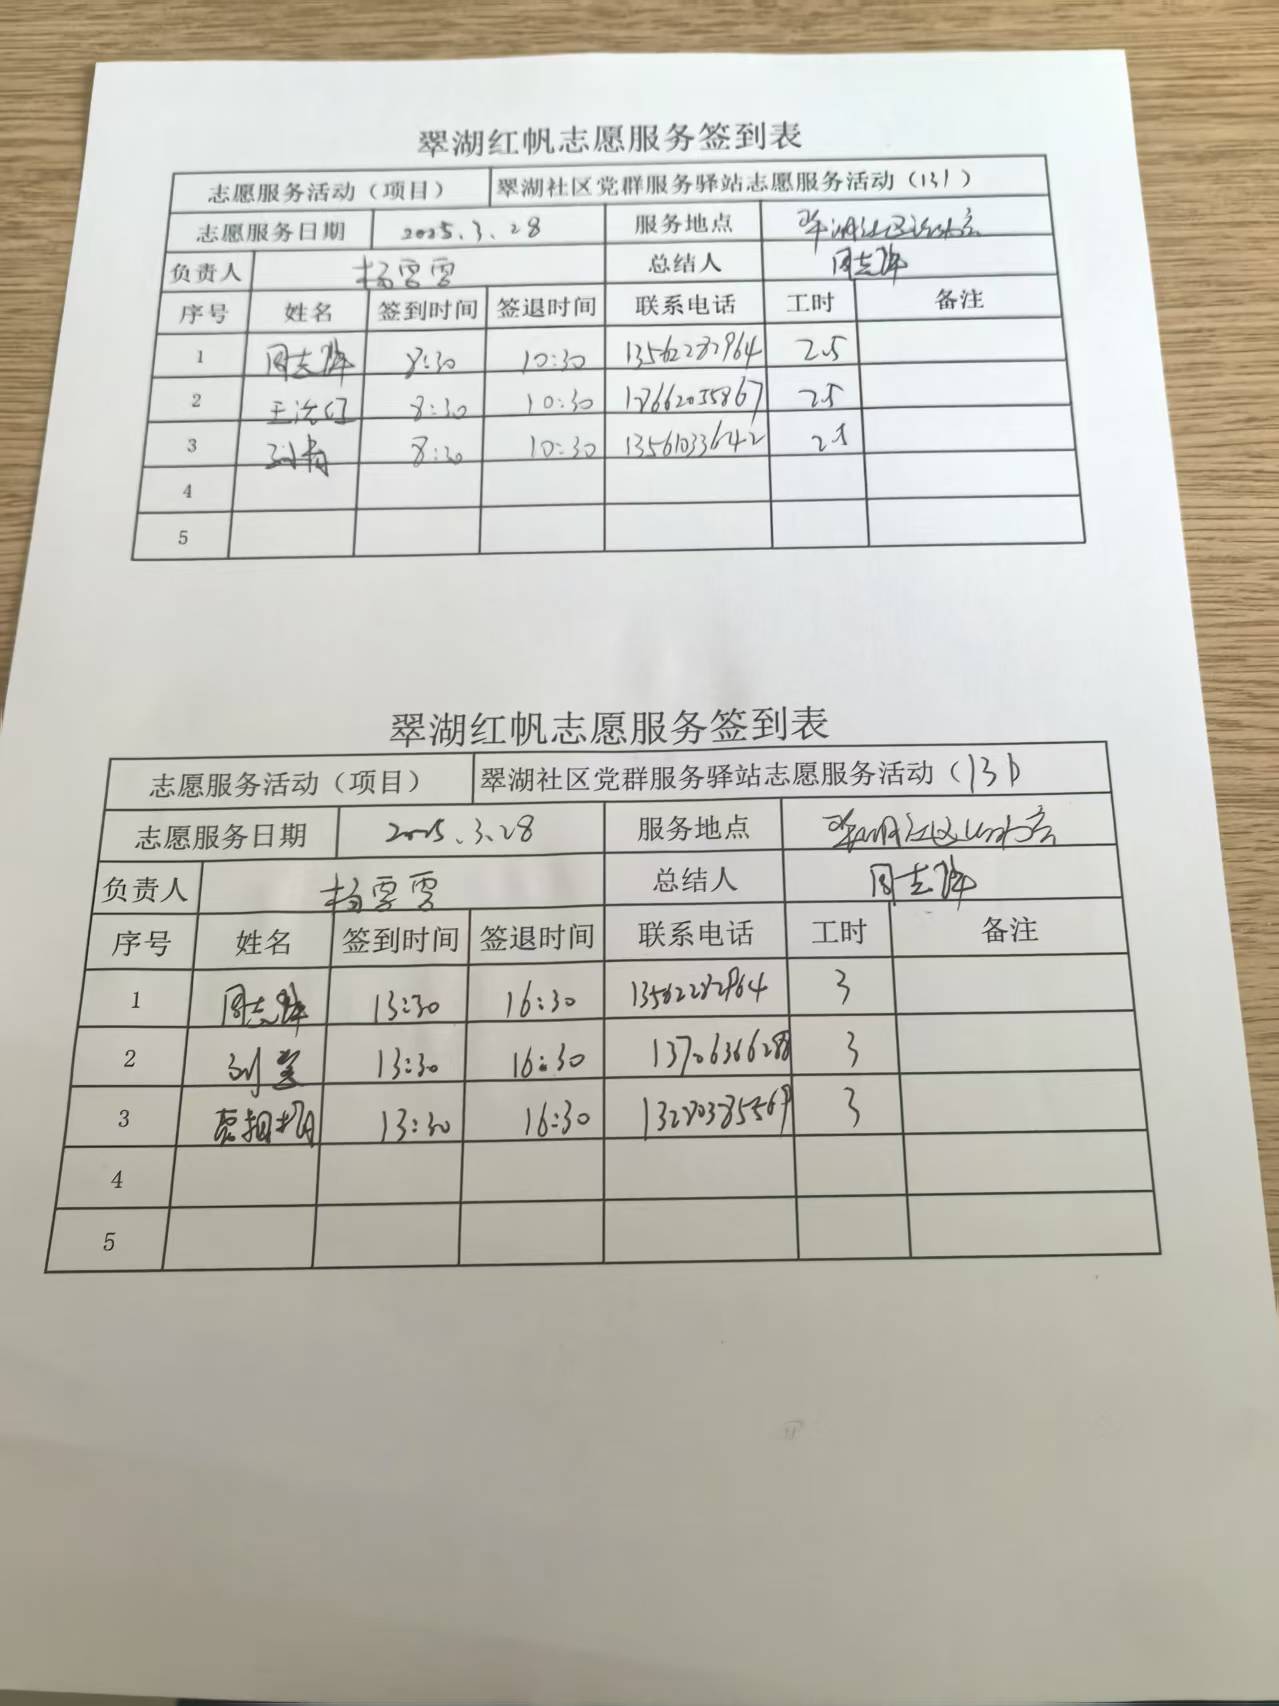 翠湖红帆志愿服务签到表
志愿服务活动（项目） 翠湖社区党群服务驿站志愿服务活动（131）
志愿服务日期 2025.3.28 服务地点 翠湖社区
负责人 杨雪雪 总结人 周志
序号 姓名 签到时间 签退时间 联系电话 工时 备注
1 周志 8:30 10:30 13562282964 2.5
2 8:30 10:30 18662035867 2.5
3 刘青 8:30 10:30 13561033642 2.5
4
5
翠湖红帆志愿服务签到表
志愿服务活动（项目） 翠湖社区党群服务驿站志愿服务活动（131）
志愿服务日期 2025.3.28 服务地点 翠湖社区
负责人 杨雪雪 总结人 周志
序号 姓名 签到时间 签退时间 联系电话 工时 备注
1 周志 13:30 16:30 13562282964 3
2 刘 13:30 16:30 3
3 13:30 16:30 13280385569 3
4
5